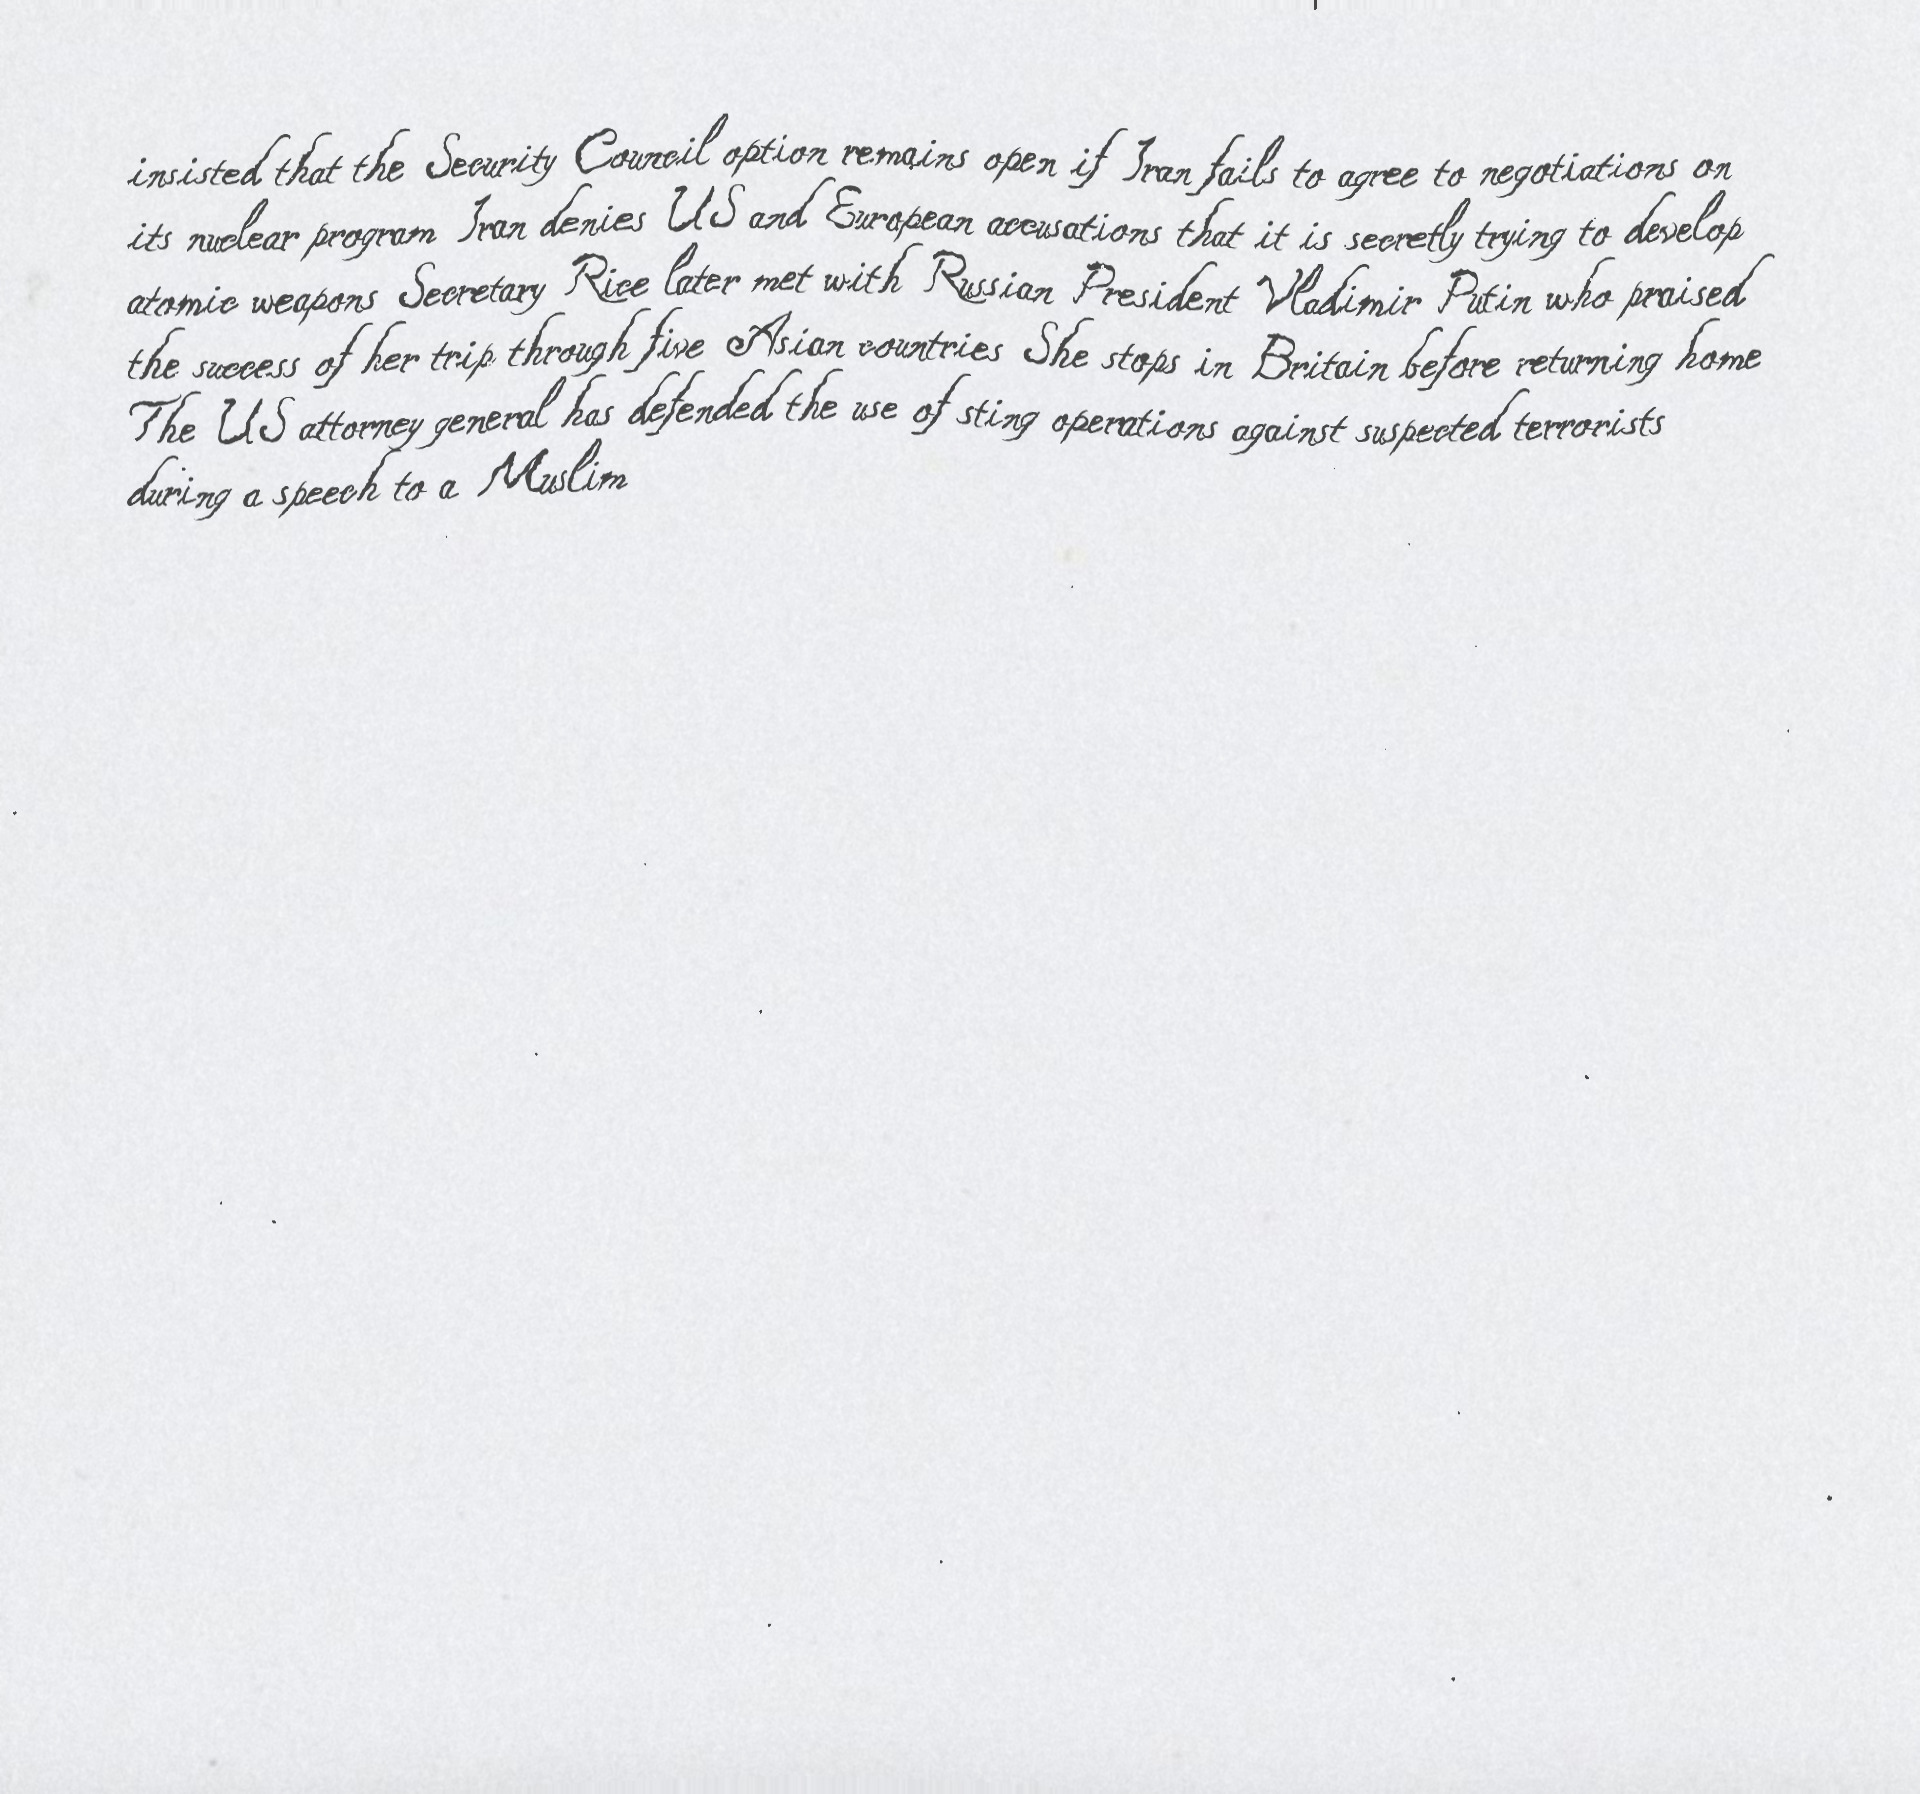 insisted that the Security Council option remains open if Iran fails to agree to negotiations on
its nuclear program Iran denies US and European accusations that it is secretly trying to develop
atomic weapons Secretary Rice later met with Russian President Vladimir Putin who praised
the success of her trip through five Asian countries She stops in Britain before returning home
The US attorney general has defended the use of sting operations against suspected terrorists
during a speech to a Muslim